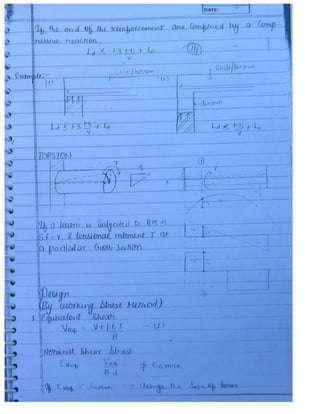 DATE:
If the end of the reinforcement are confined by a comp-
ressive reaction.
Ld ≤ 1.3 M1/V + Lo (11)
Example:-
(i) slab/beam (ii) slab/beam
beam
Ld ≤ 1.3 M/V + Lo Ld ≤ M1/V + Lo
TORSION
If a beam is subjected to BM-M
S.F-V & torsional moment T at
a particular cross-section
Design
(By working stress Method)
1. Equivalent shear
Veq = V + 1.6 T/B —(1)
Nominal shear stress
Veq / B.d
If > change the size of beam